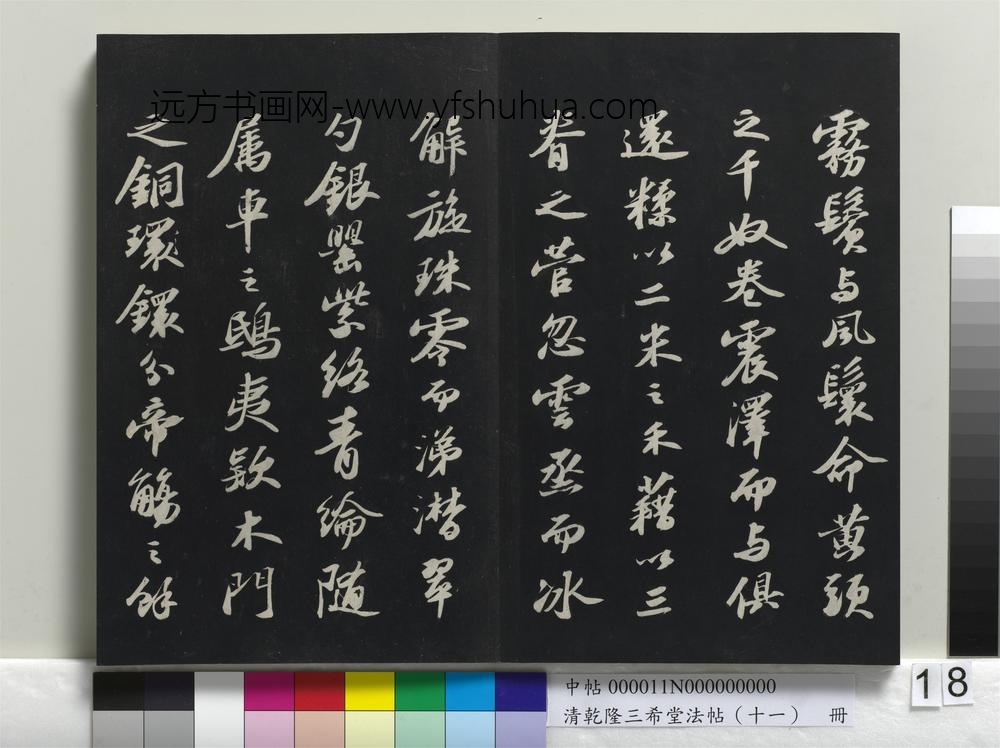 远方书画网-www.yfshuhua.com
霧鬢与風鬟命黃頭
之千奴卷震澤而与俱
還糅以二米之禾藉以三
脊之菅忽雲烝而冰
解旋珠零而涕潸翠
勺銀罌紫絡青綸隨
属車之鴟夷款木門
之銅環鐶分帝觴之餘
中帖 000011N000000000
清乾隆三希堂法帖（十一） 冊
18